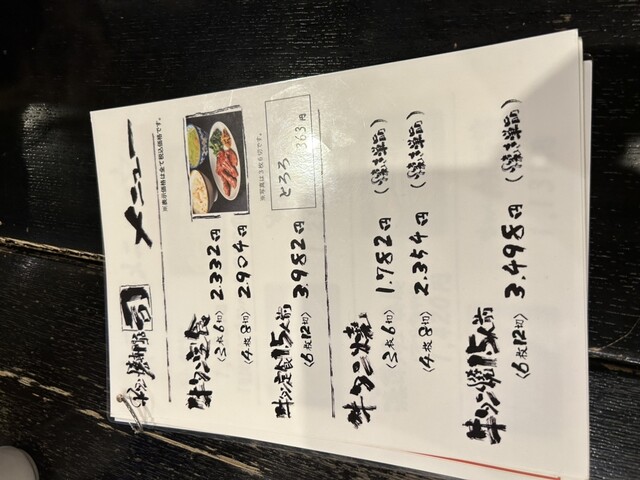 牛タン炭焼 司 メニュー
※表示価格は全て税込価格です。
牛タン定食
(3枚6切) 2.332円
(4枚8切) 2.904円
※写真は3枚6切です。
牛タン定食1.5人前
(6枚12切) 3.982円
とろろ
363円
牛タン焼
(3枚6切) 1.782円 (焼き単品)
(4枚8切) 2.354円 (焼き単品)
牛タン焼1.5人前
(6枚12切) 3.498円 (焼き単品)